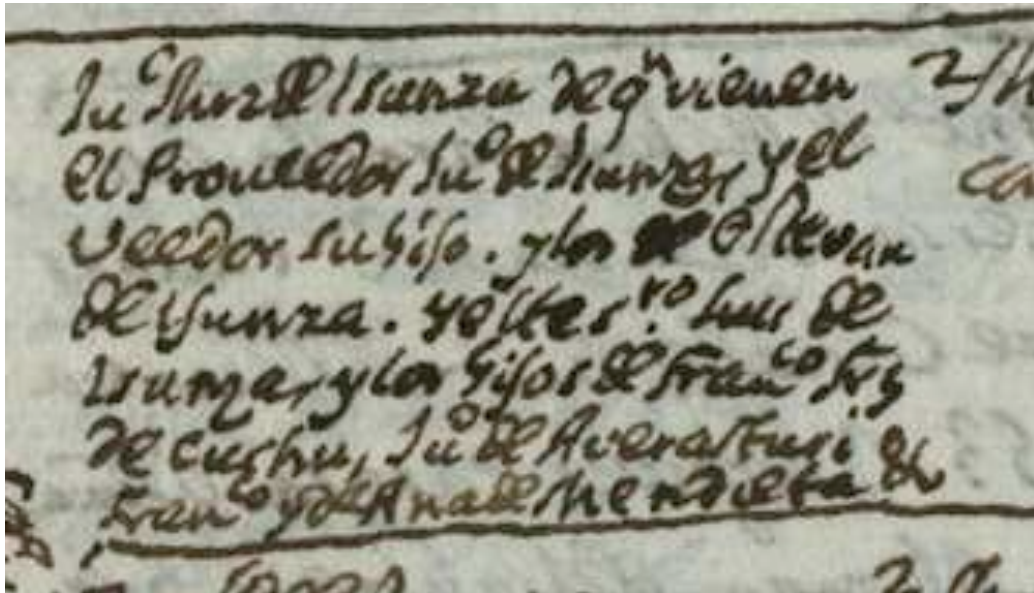 Ju.º Mrz de Isunza de qⁿ vienen
el Proueedor Ju.º de Isunza, y el
Veedor su hijo. y los de Esteuan
de Isunza. y el tes.ʳᵒ Luis de
Isunza, y los hijos de Fran.ᶜᵒ
de Ju.º de Auerasturi
Fran.ᶜᵒ y de Ana de Mendieta &